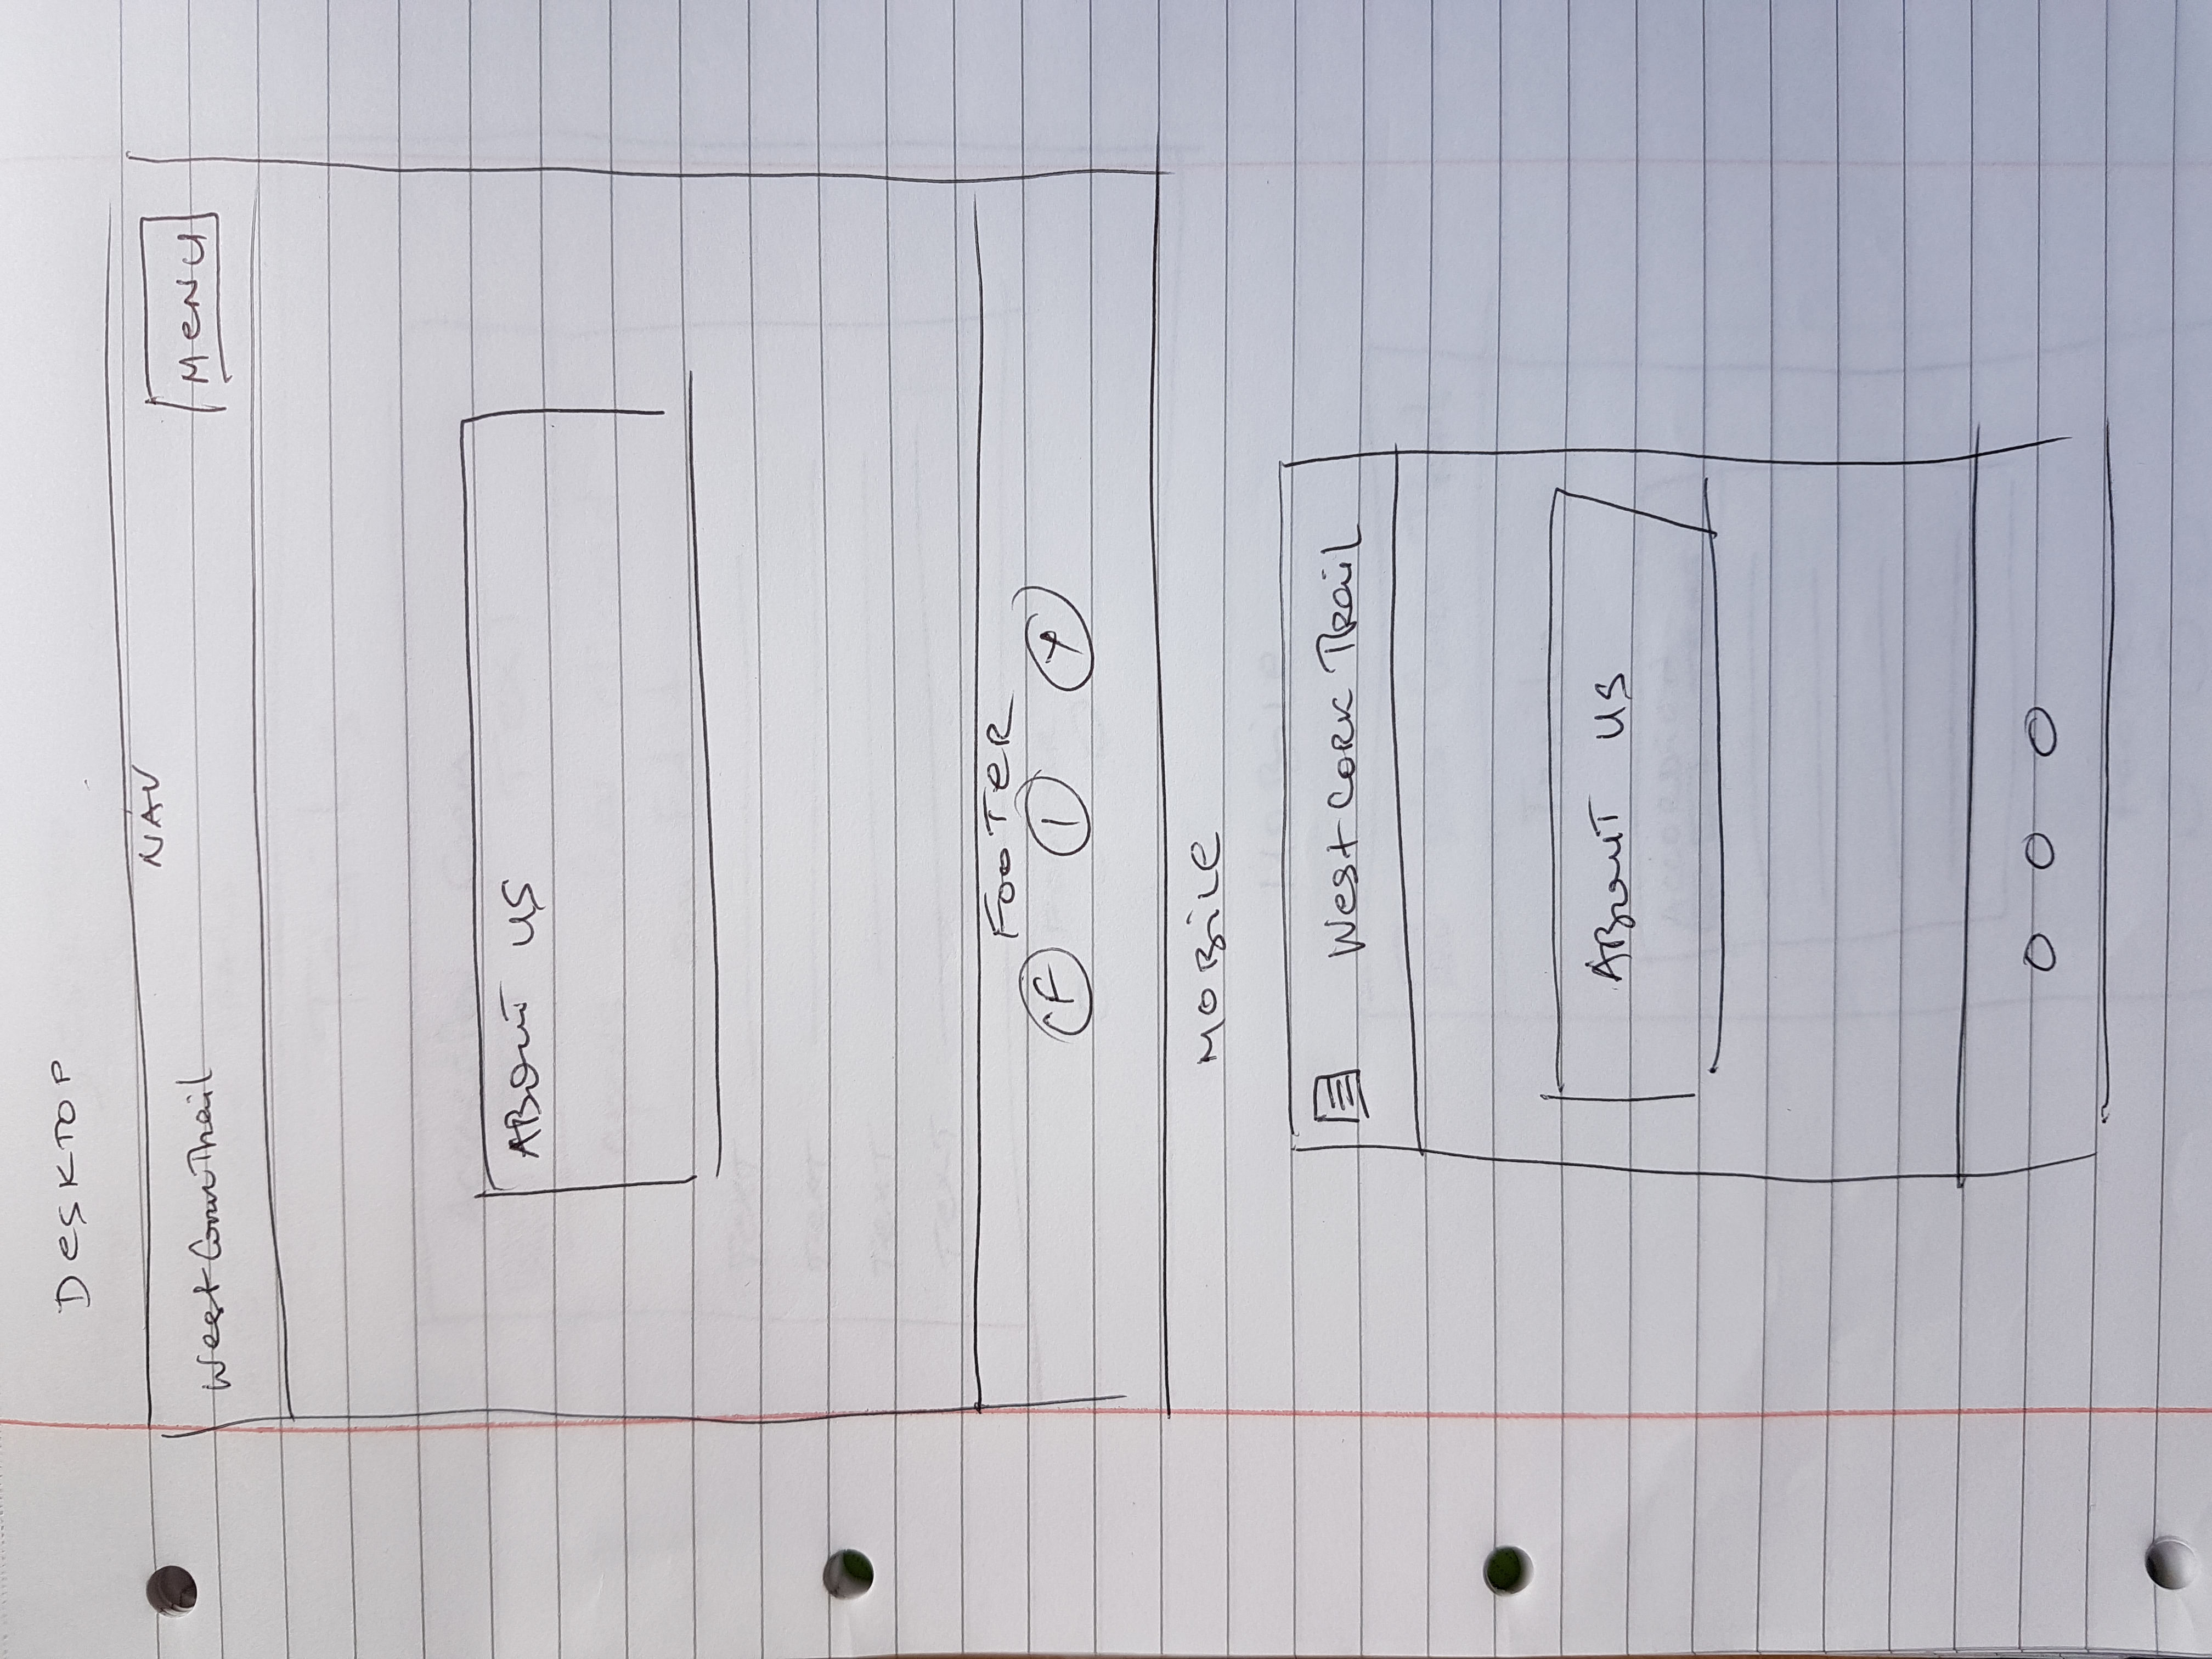 DESKTOP
NAV
West Cork Trail
MENU
ABOUT US
FOOTER
F I Y
MOBILE
West CORK TRail
ABOUT US